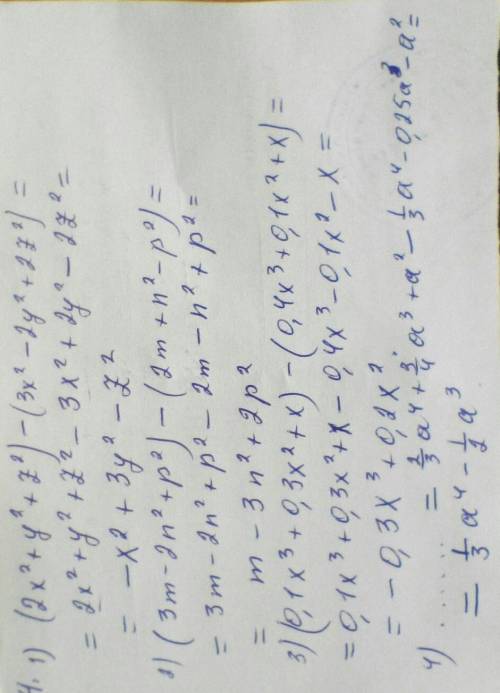 4. 1) (2x²+y²+z²)-(3x²-2y²+2z²)=
= 2x²+y²+z²-3x²+2y²-2z²=
= -x²+3y²-z²
2) (3m-2n²+p²)-(2m+n²-p²)=
= 3m-2n²+p²-2m-n²+p²=
= m-3n²+2p²
3) (0,1x³+0,3x²+x)-(0,4x³+0,1x²+x)=
= 0,1x³+0,3x²+x-0,4x³-0,1x²-x=
= -0,3x³+0,2x²
4) ...... = 2/3a⁴+3/4a³+a²-1/3a⁴-0,25a³-a²=
= 1/3a⁴-1/2a³